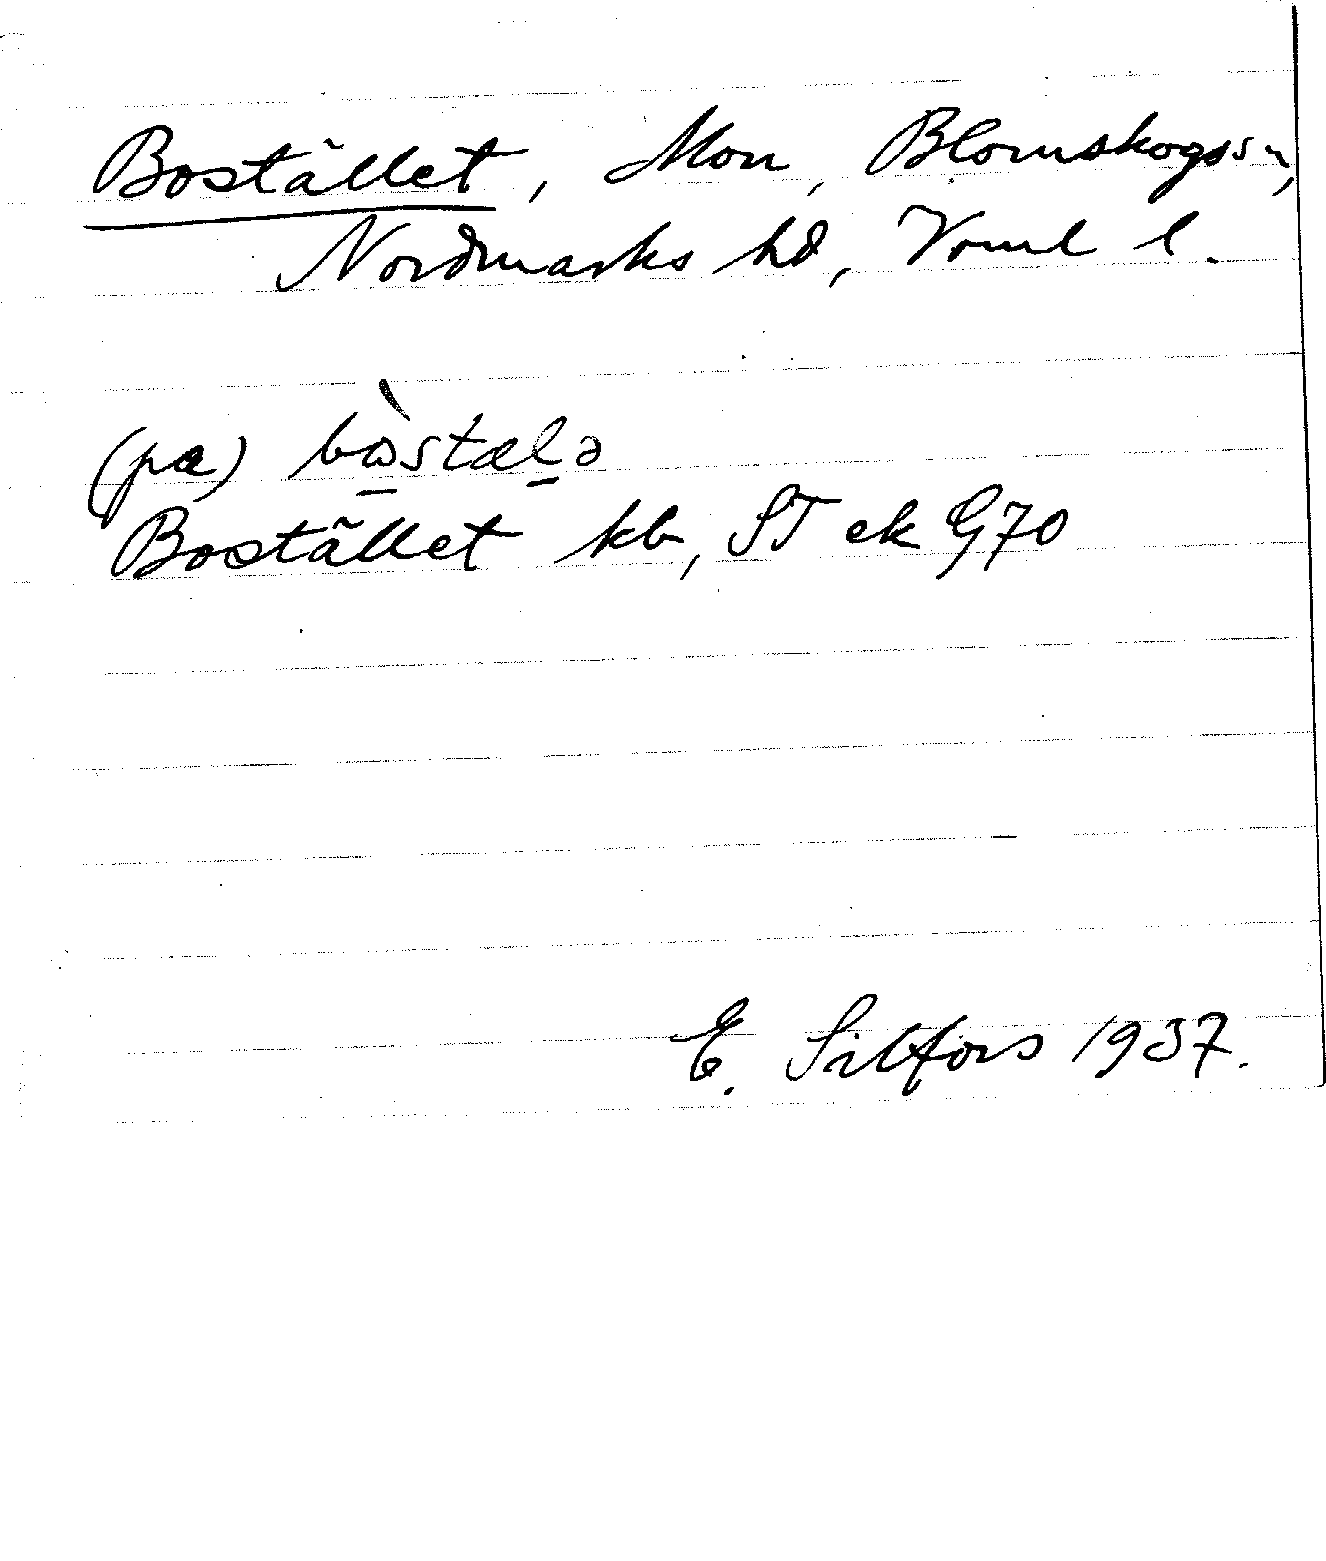 Bostället, Mon, Blomskogs sn,
Nordmarks hd, Vrml l.
(pæ) bòstælə
Bostället kb, ST ek G70
E. Silfors 1937.